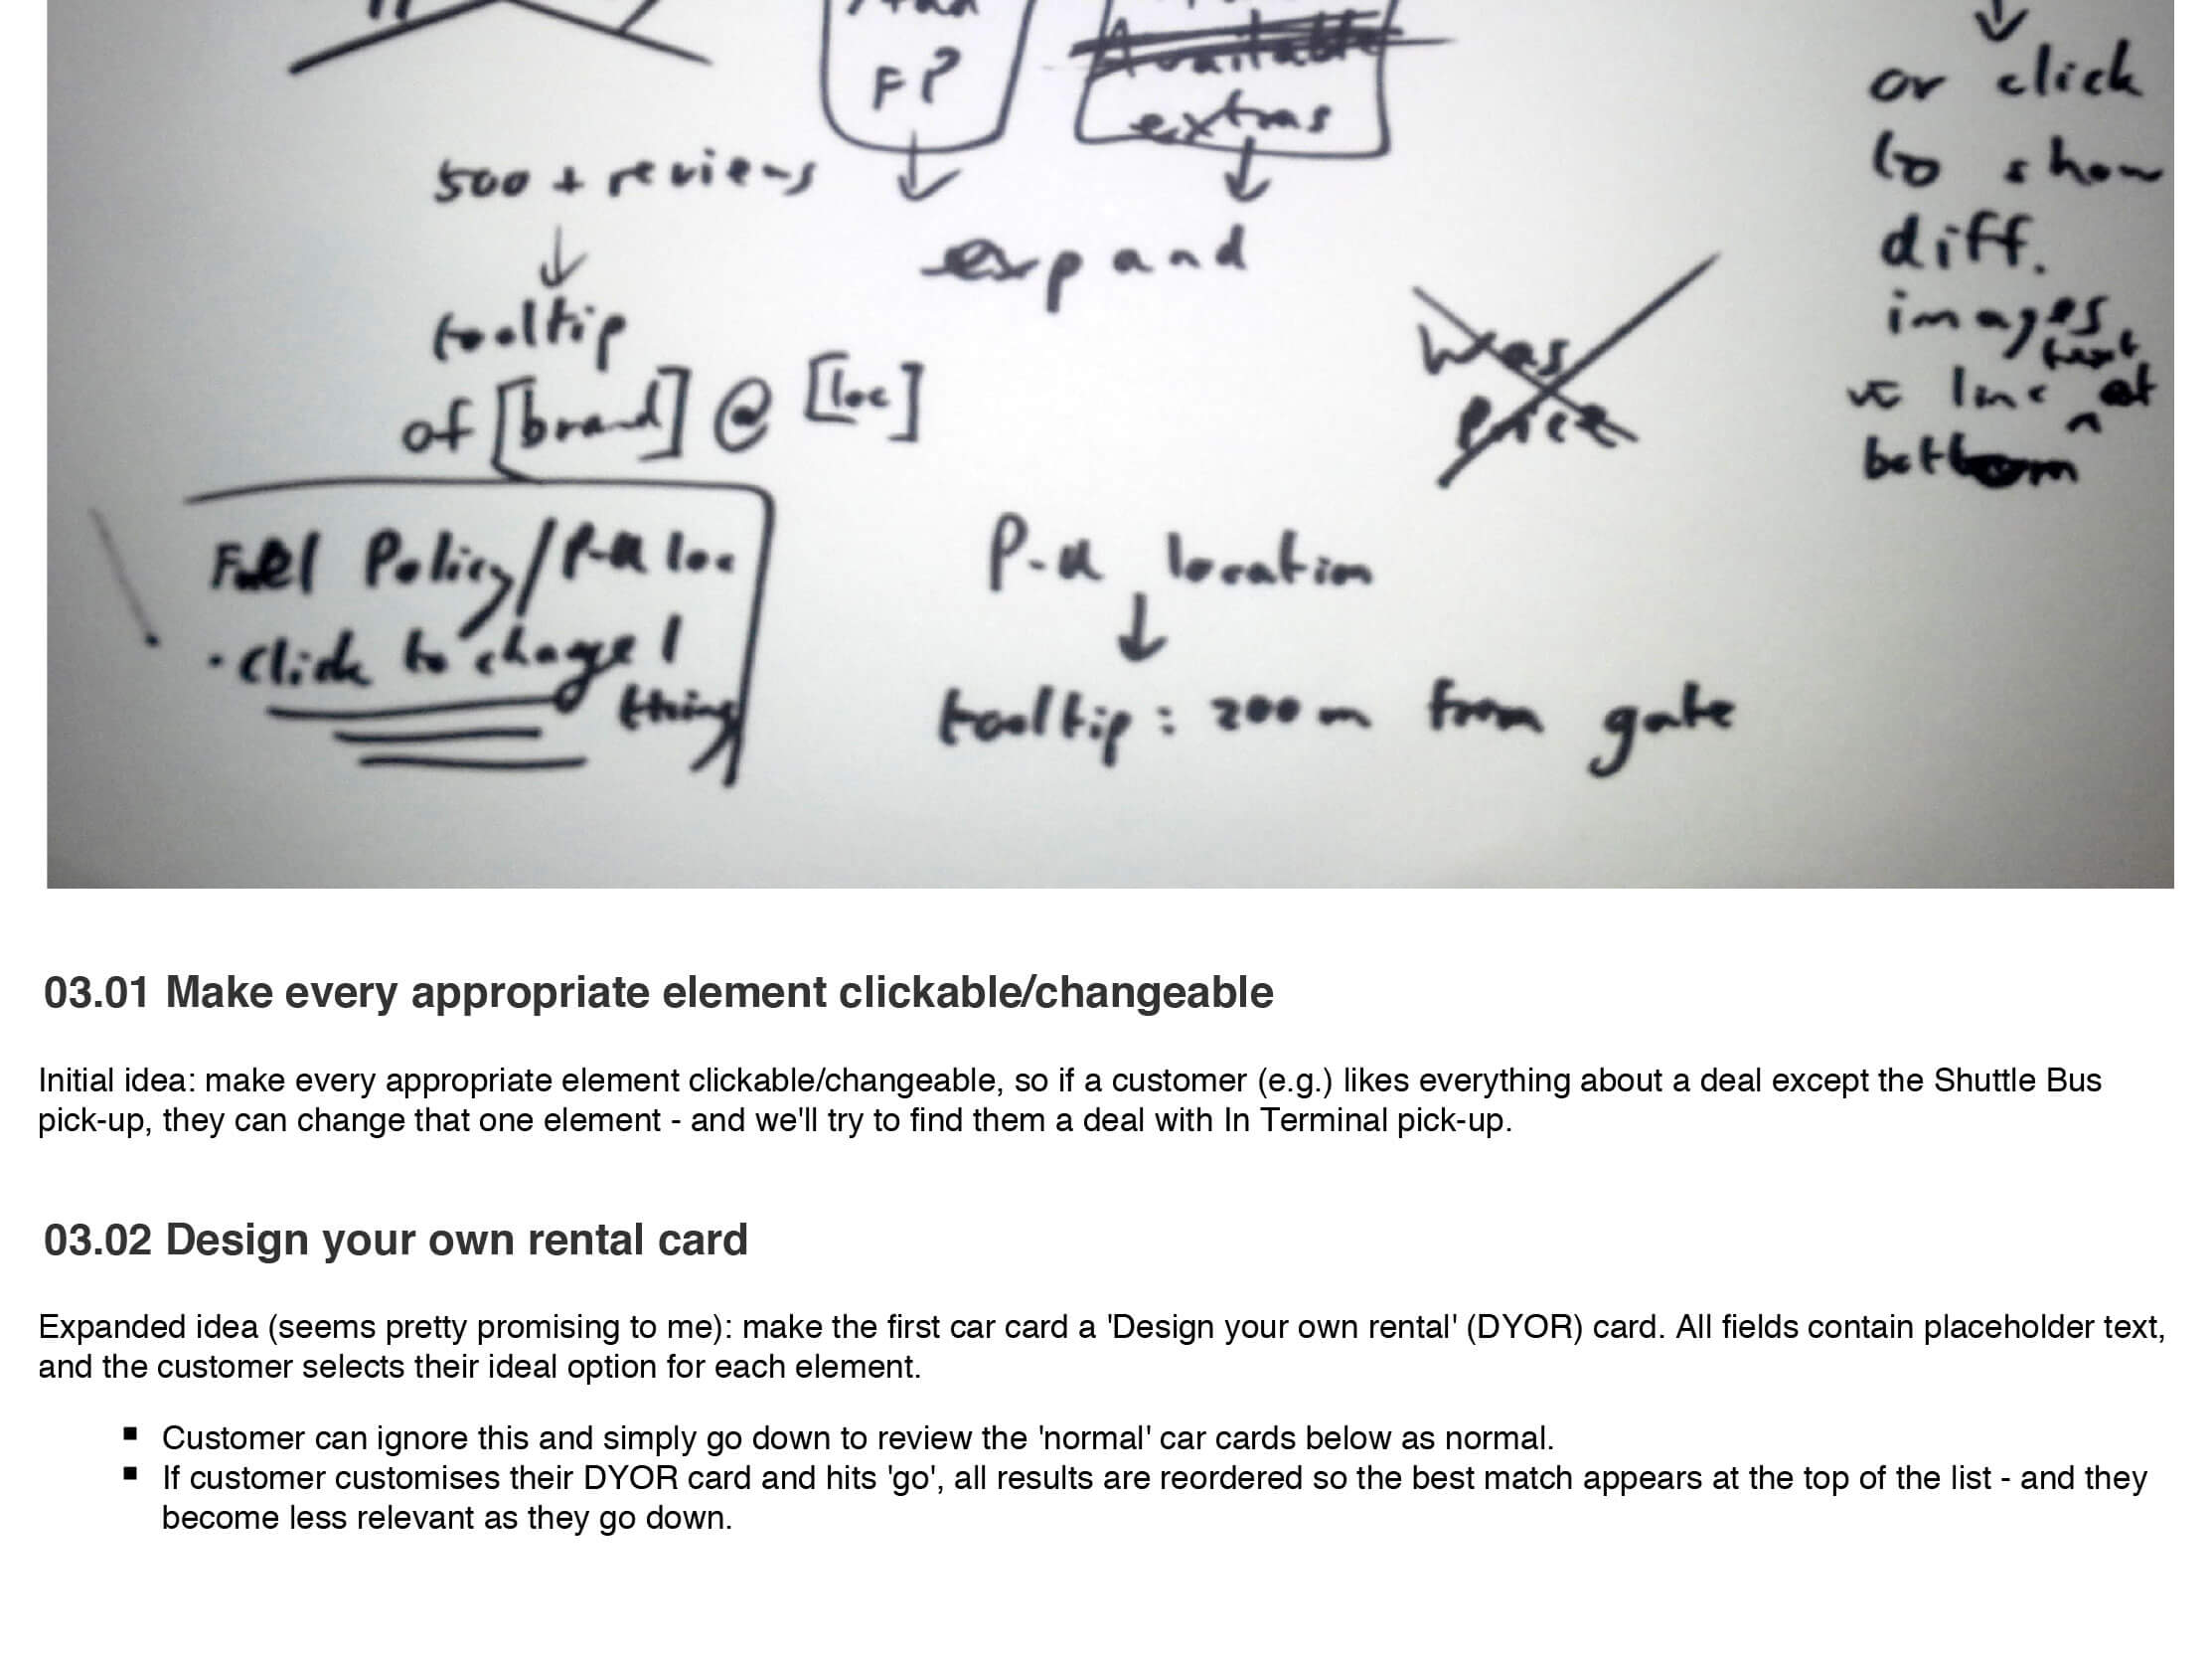 F?
Available
extras
500 + reviews
expand
tooltip
of [brand] @ [loc]
was
price
or click
to show
diff.
images
text
line at
bottom
Fuel Policy/P-u loc
• Click to change 1
thing
P-u location
tooltip: 200m from gate
03.01 Make every appropriate element clickable/changeable
Initial idea: make every appropriate element clickable/changeable, so if a customer (e.g.) likes everything about a deal except the Shuttle Bus
pick-up, they can change that one element - and we'll try to find them a deal with In Terminal pick-up.
03.02 Design your own rental card
Expanded idea (seems pretty promising to me): make the first car card a 'Design your own rental' (DYOR) card. All fields contain placeholder text,
and the customer selects their ideal option for each element.
▪ Customer can ignore this and simply go down to review the 'normal' car cards below as normal.
▪ If customer customises their DYOR card and hits 'go', all results are reordered so the best match appears at the top of the list - and they
become less relevant as they go down.